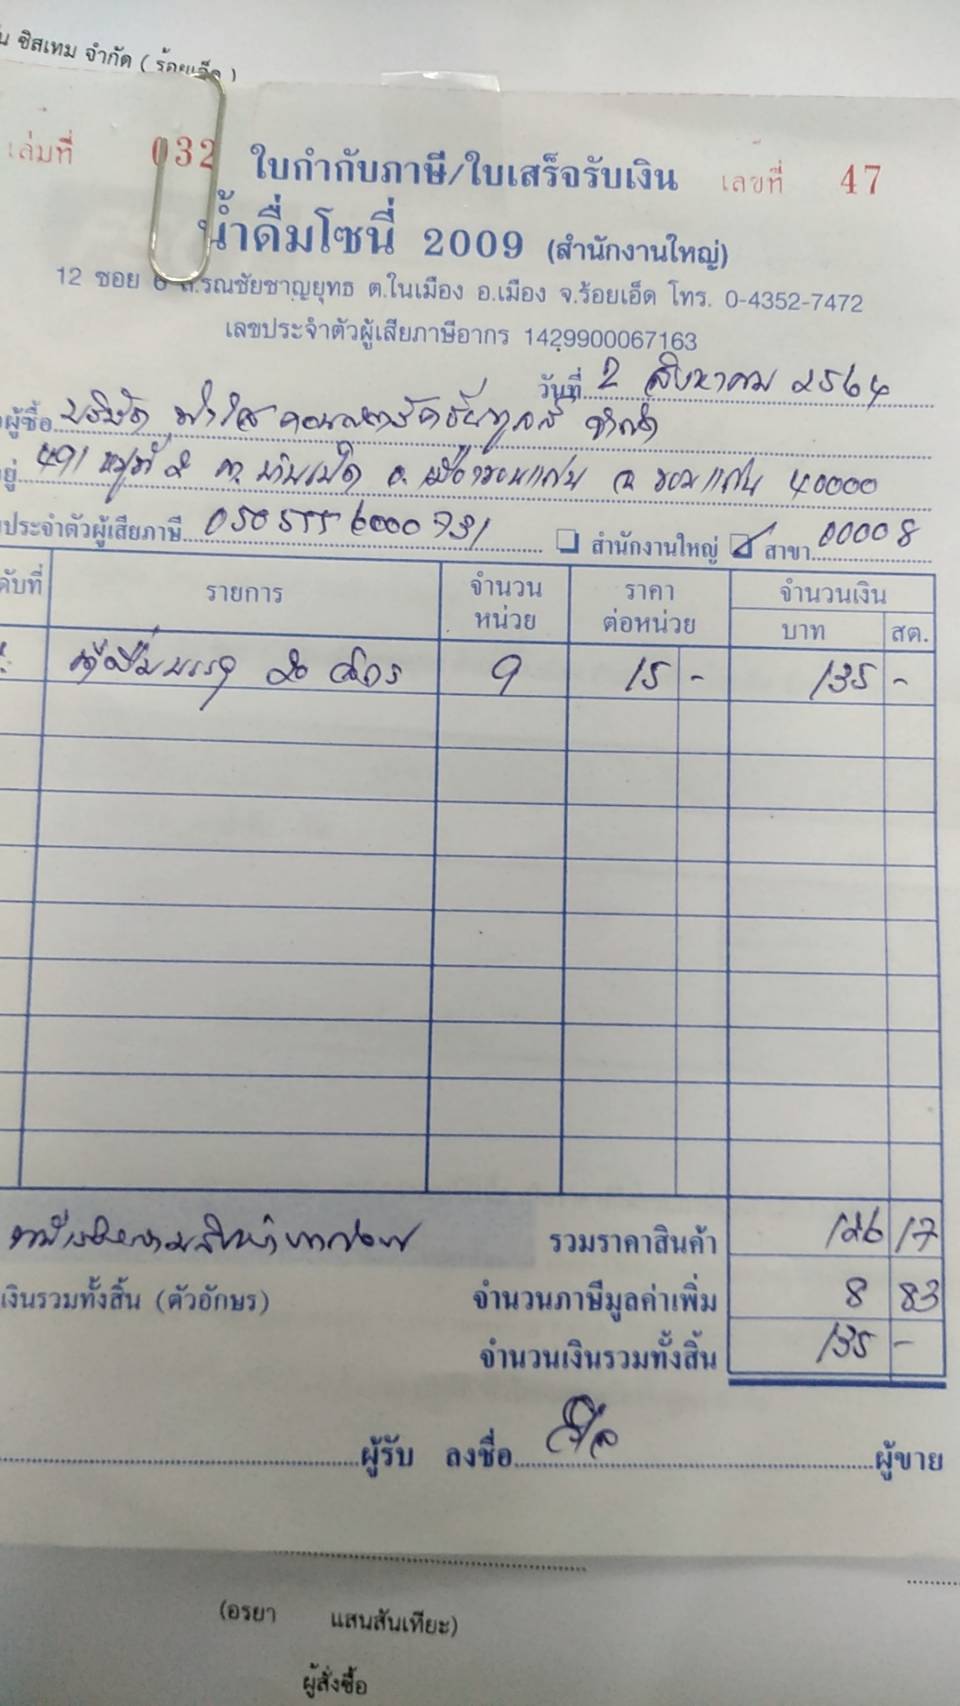 ซิสเทม จำกัด (ร้อยเอ็ด)
เล่มที่ 032 ใบกำกับภาษี/ใบเสร็จรับเงิน เลขที่ 47
น้ำดื่มโซนี่ 2009 (สำนักงานใหญ่)
12 ซอย 6 ถ.รณชัยชาญยุทธ ต.ในเมือง อ.เมือง จ.ร้อยเอ็ด โทร. 0-4352-7472
เลขประจำตัวผู้เสียภาษีอากร 1429900067163
วันที่ 2 สิงหาคม 2564
ผู้ซื้อ บริษัท จำกัด
491 หมู่ที่ 2 ต.บ้านเป็ด อ.เมืองขอนแก่น จ.ขอนแก่น 40000
ประจำตัวผู้เสียภาษี 0505556000731 สำนักงานใหญ่ สาขา 00008
ดับที่ รายการ จำนวน หน่วย ราคา ต่อหน่วย จำนวนเงิน บาท สต.
น้ำดื่มบรรจุ 20 ลิตร 9 15 - 135 -
หนึ่งร้อยสามสิบห้าบาทถ้วน รวมราคาสินค้า 126 17
เงินรวมทั้งสิ้น (ตัวอักษร) จำนวนภาษีมูลค่าเพิ่ม 8 83
จำนวนเงินรวมทั้งสิ้น 135 -
ผู้รับ ลงชื่อ ผู้ขาย
(อรยา แสนสันเทียะ)
ผู้สั่งซื้อ